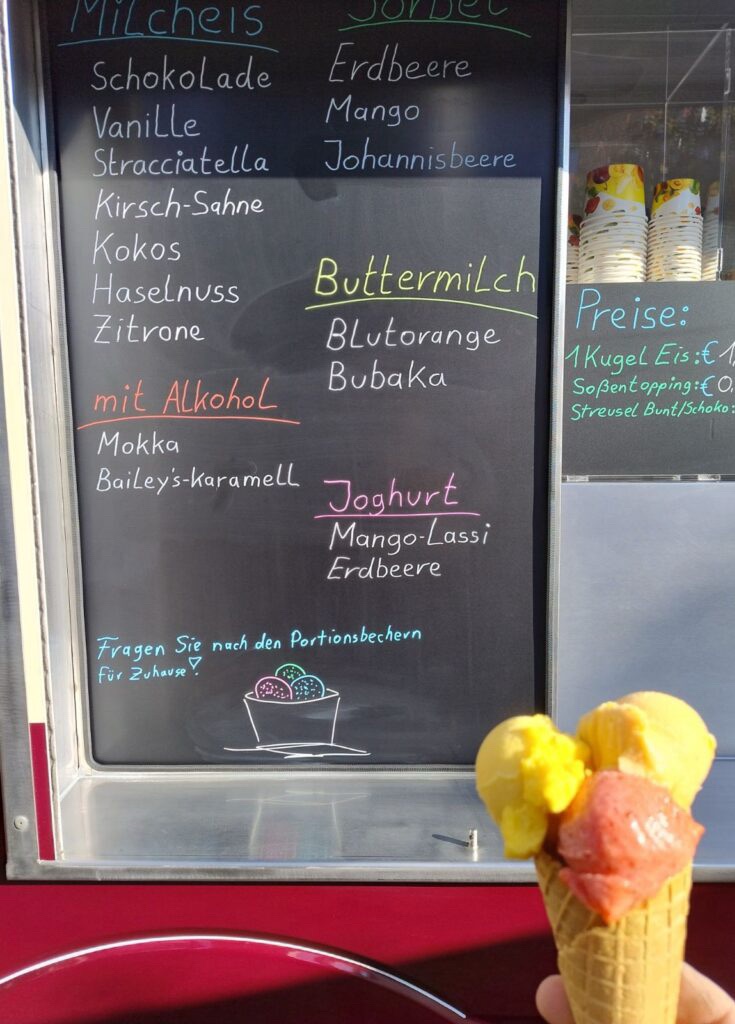 Milcheis
Schokolade
Vanille
Stracciatella
Kirsch-Sahne
Kokos
Haselnuss
Zitrone
mit Alkohol
Mokka
Bailey's-Karamell
Sorbet
Erdbeere
Mango
Johannisbeere
Buttermilch
Blutorange
Bubaka
Joghurt
Mango-Lassi
Erdbeere
Fragen Sie nach den Portionsbechern
für Zuhause!
Preise:
1 Kugel Eis: € 1,
Soßentopping: € 0,
Streusel Bunt/Schoko: